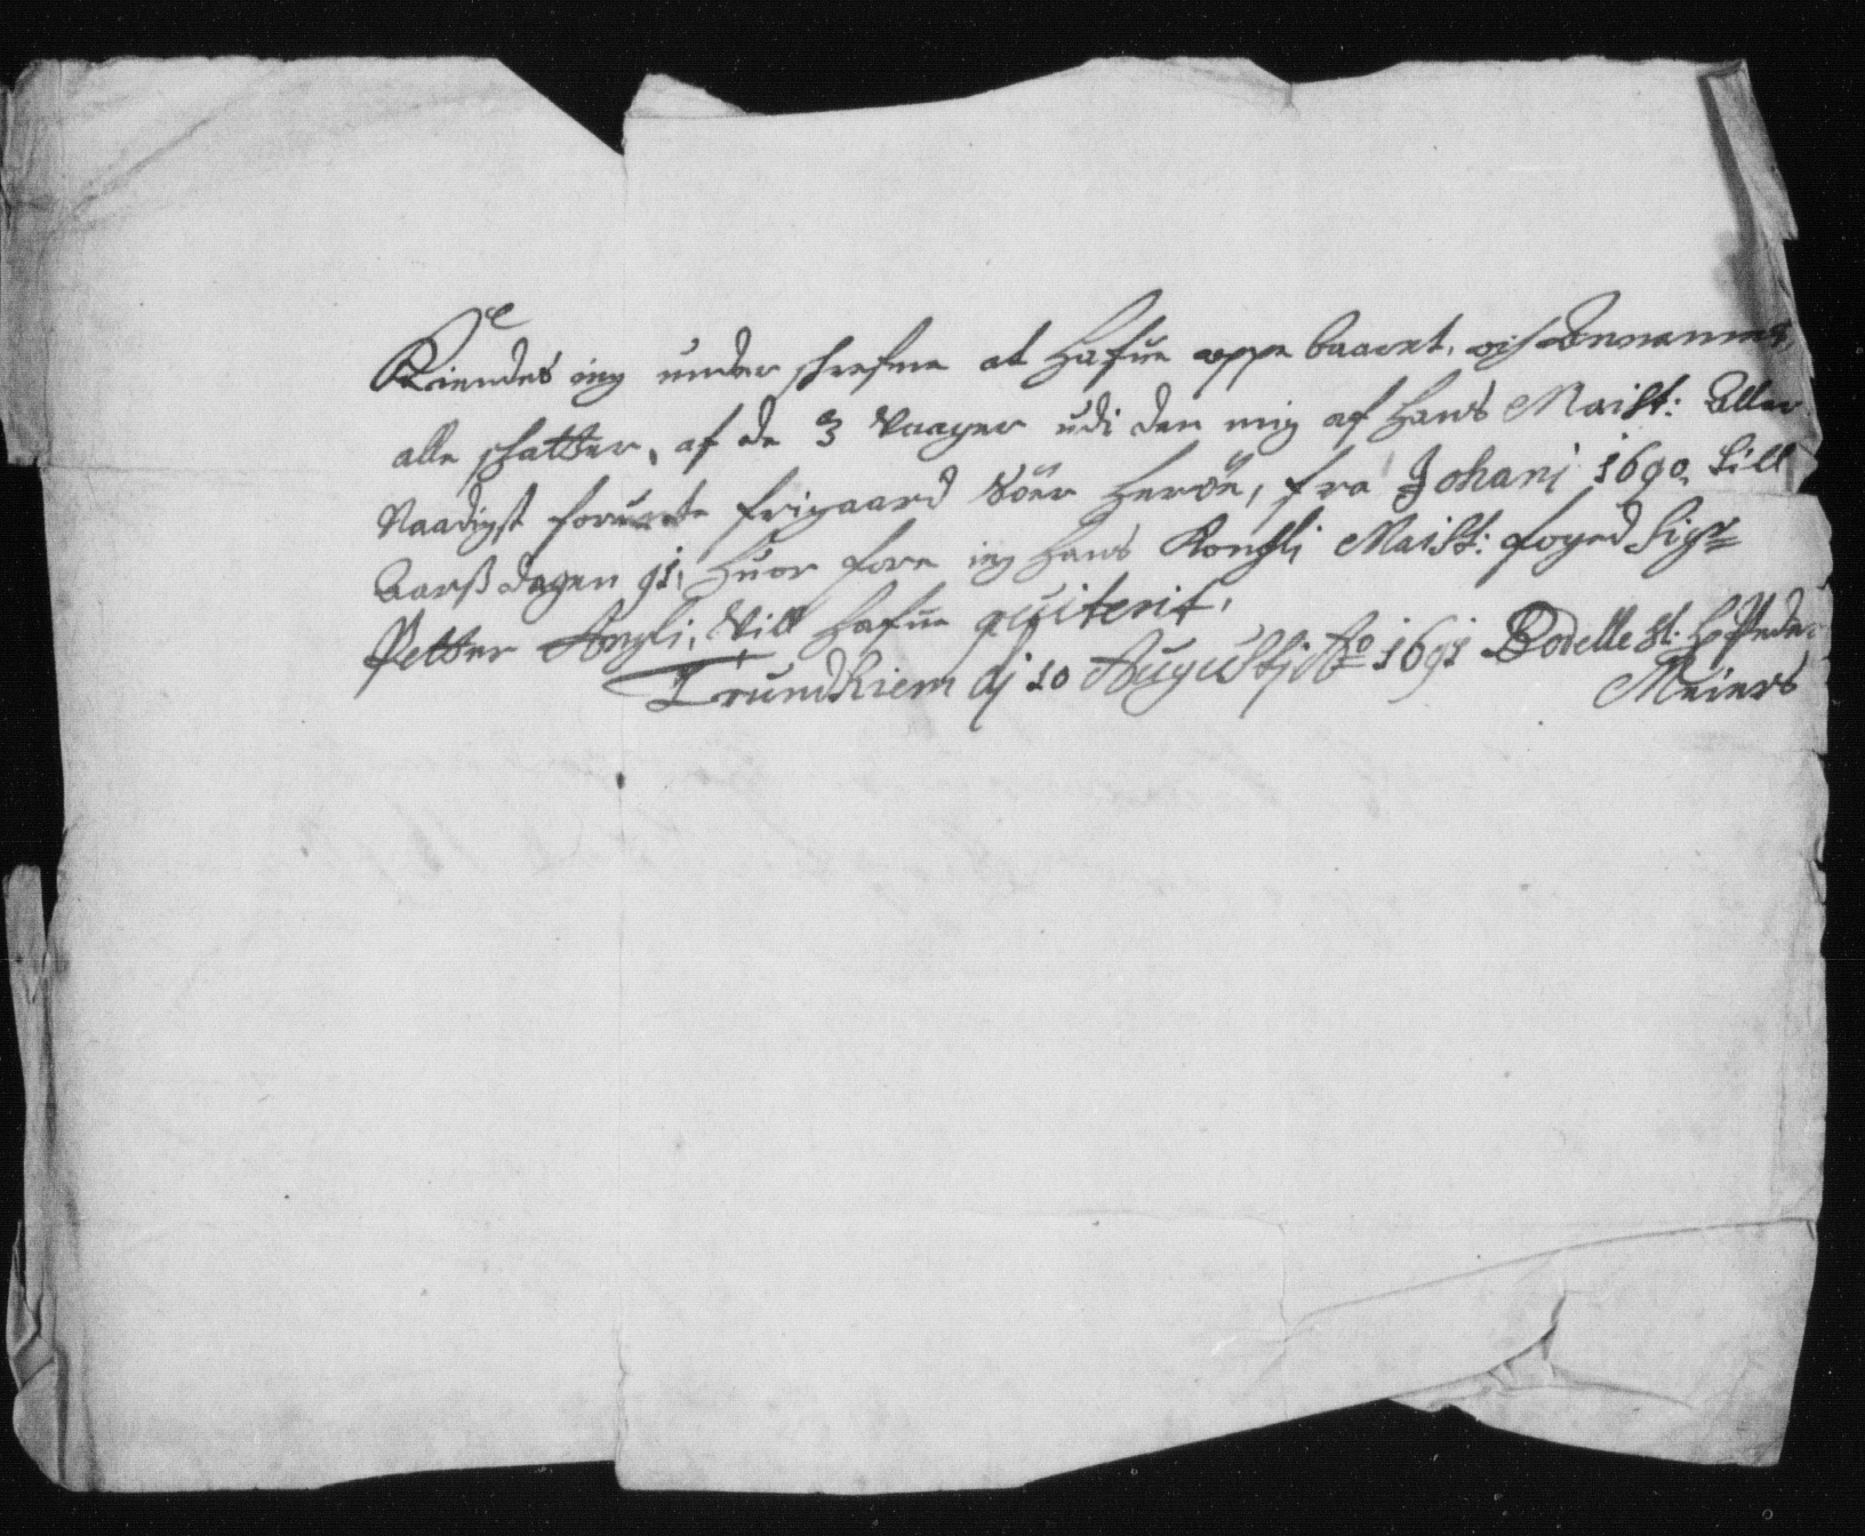 Kiendes ieg under schrefne at hafue oppe baaret, och Annammet,
alle schatter, af de 3 Vaager udi den mig af hans Maist: Aller
Naadigst forunte frigaard Söer Heröe, fra Johani 1690 till
Aarsß dagen 91, huor fore ieg hans Kongli Maist: foged Sigr
Petter Angli, Vill hafue quiterit,
Trundhiem dj 10 Augustj Ao 1691 Bodelle Sl. Hr Peder
Meiers